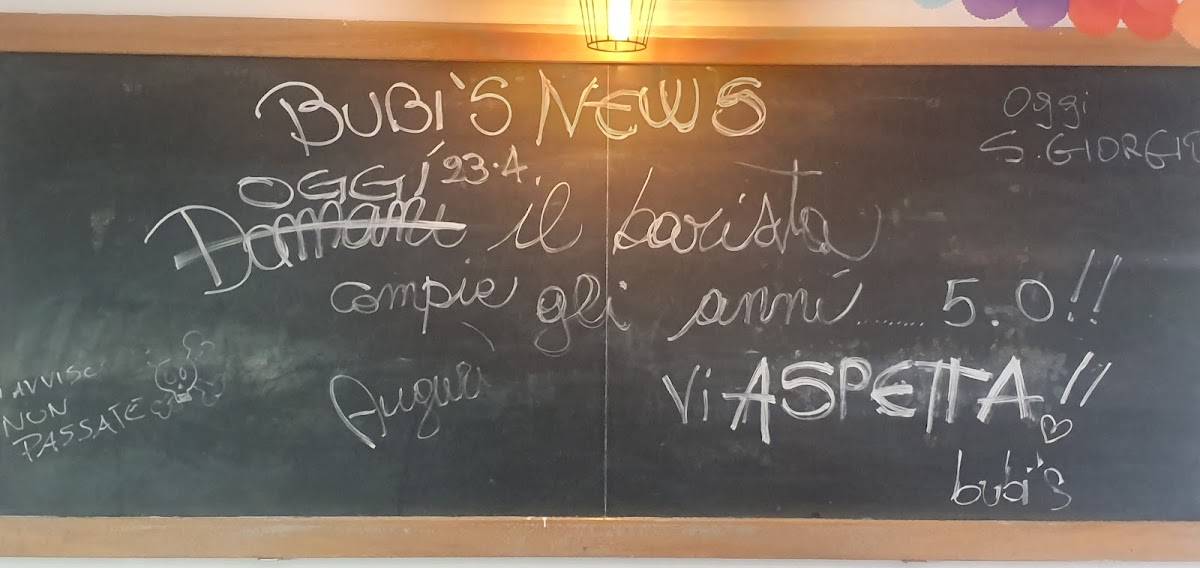 BUBI'S NEWS
Oggi
S. GIORGIO
OGGI 23.4.
Domani il barista
compie gli anni ........ 5.0!!
Auguri
Vi ASPETTA!!
bubi's
AVVISO
NON
PASSATE